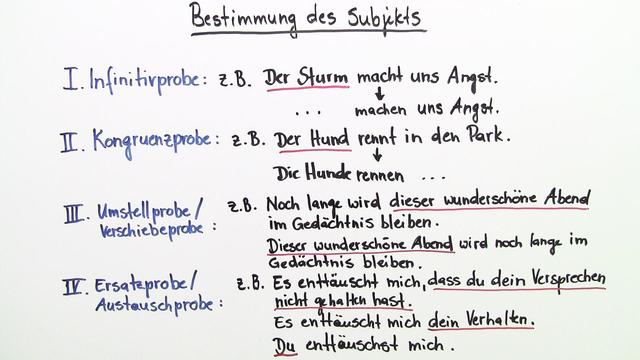 Bestimmung des Subjekts
I. Infinitivprobe: z.B. Der Sturm macht uns Angst.
... machen uns Angst.
II. Kongruenzprobe: z.B. Der Hund rennt in den Park.
Die Hunde rennen ...
III. Umstellprobe/ z.B. Noch lange wird dieser wunderschöne Abend
Verschiebeprobe: im Gedächtnis bleiben.
Dieser wunderschöne Abend wird noch lange im
Gedächtnis bleiben.
IV. Ersatzprobe/ z.B. Es enttäuscht mich, dass du dein Versprechen
Austauschprobe: nicht gehalten hast.
Es enttäuscht mich dein Verhalten.
Du enttäuschst mich.